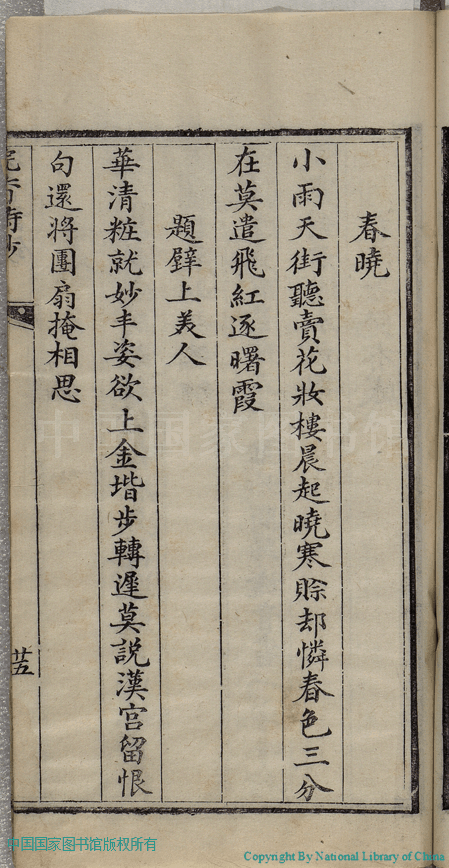 春曉
小雨天街聽賣花妝樓晨起曉寒賒却憐春色三分
在莫遣飛紅逐曙霞
題壁上美人
華清粧就妙丰姿欲上金堦步轉遲莫說漢宮留恨
句還將團扇掩相思
廿五
中国国家图书馆
中国国家图书馆版权所有
Copyright By National Library of China